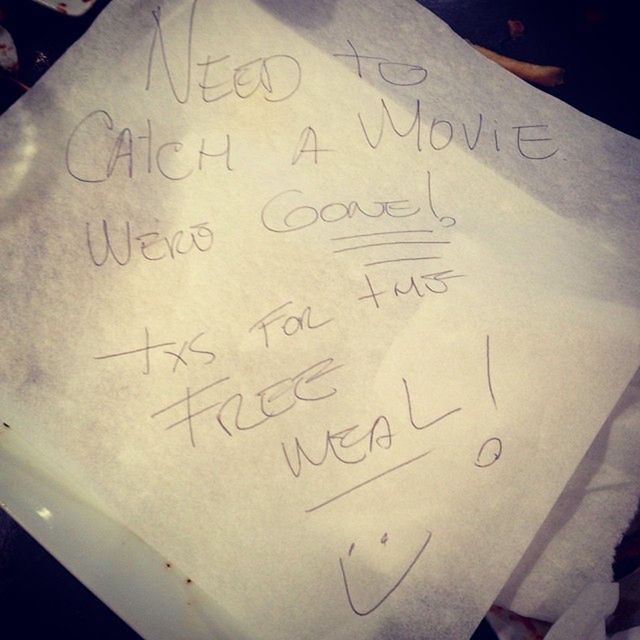 NEED TO
CATCH A MOVIE
WERE GONE!
TXS FOR THE
FREE
MEAL!